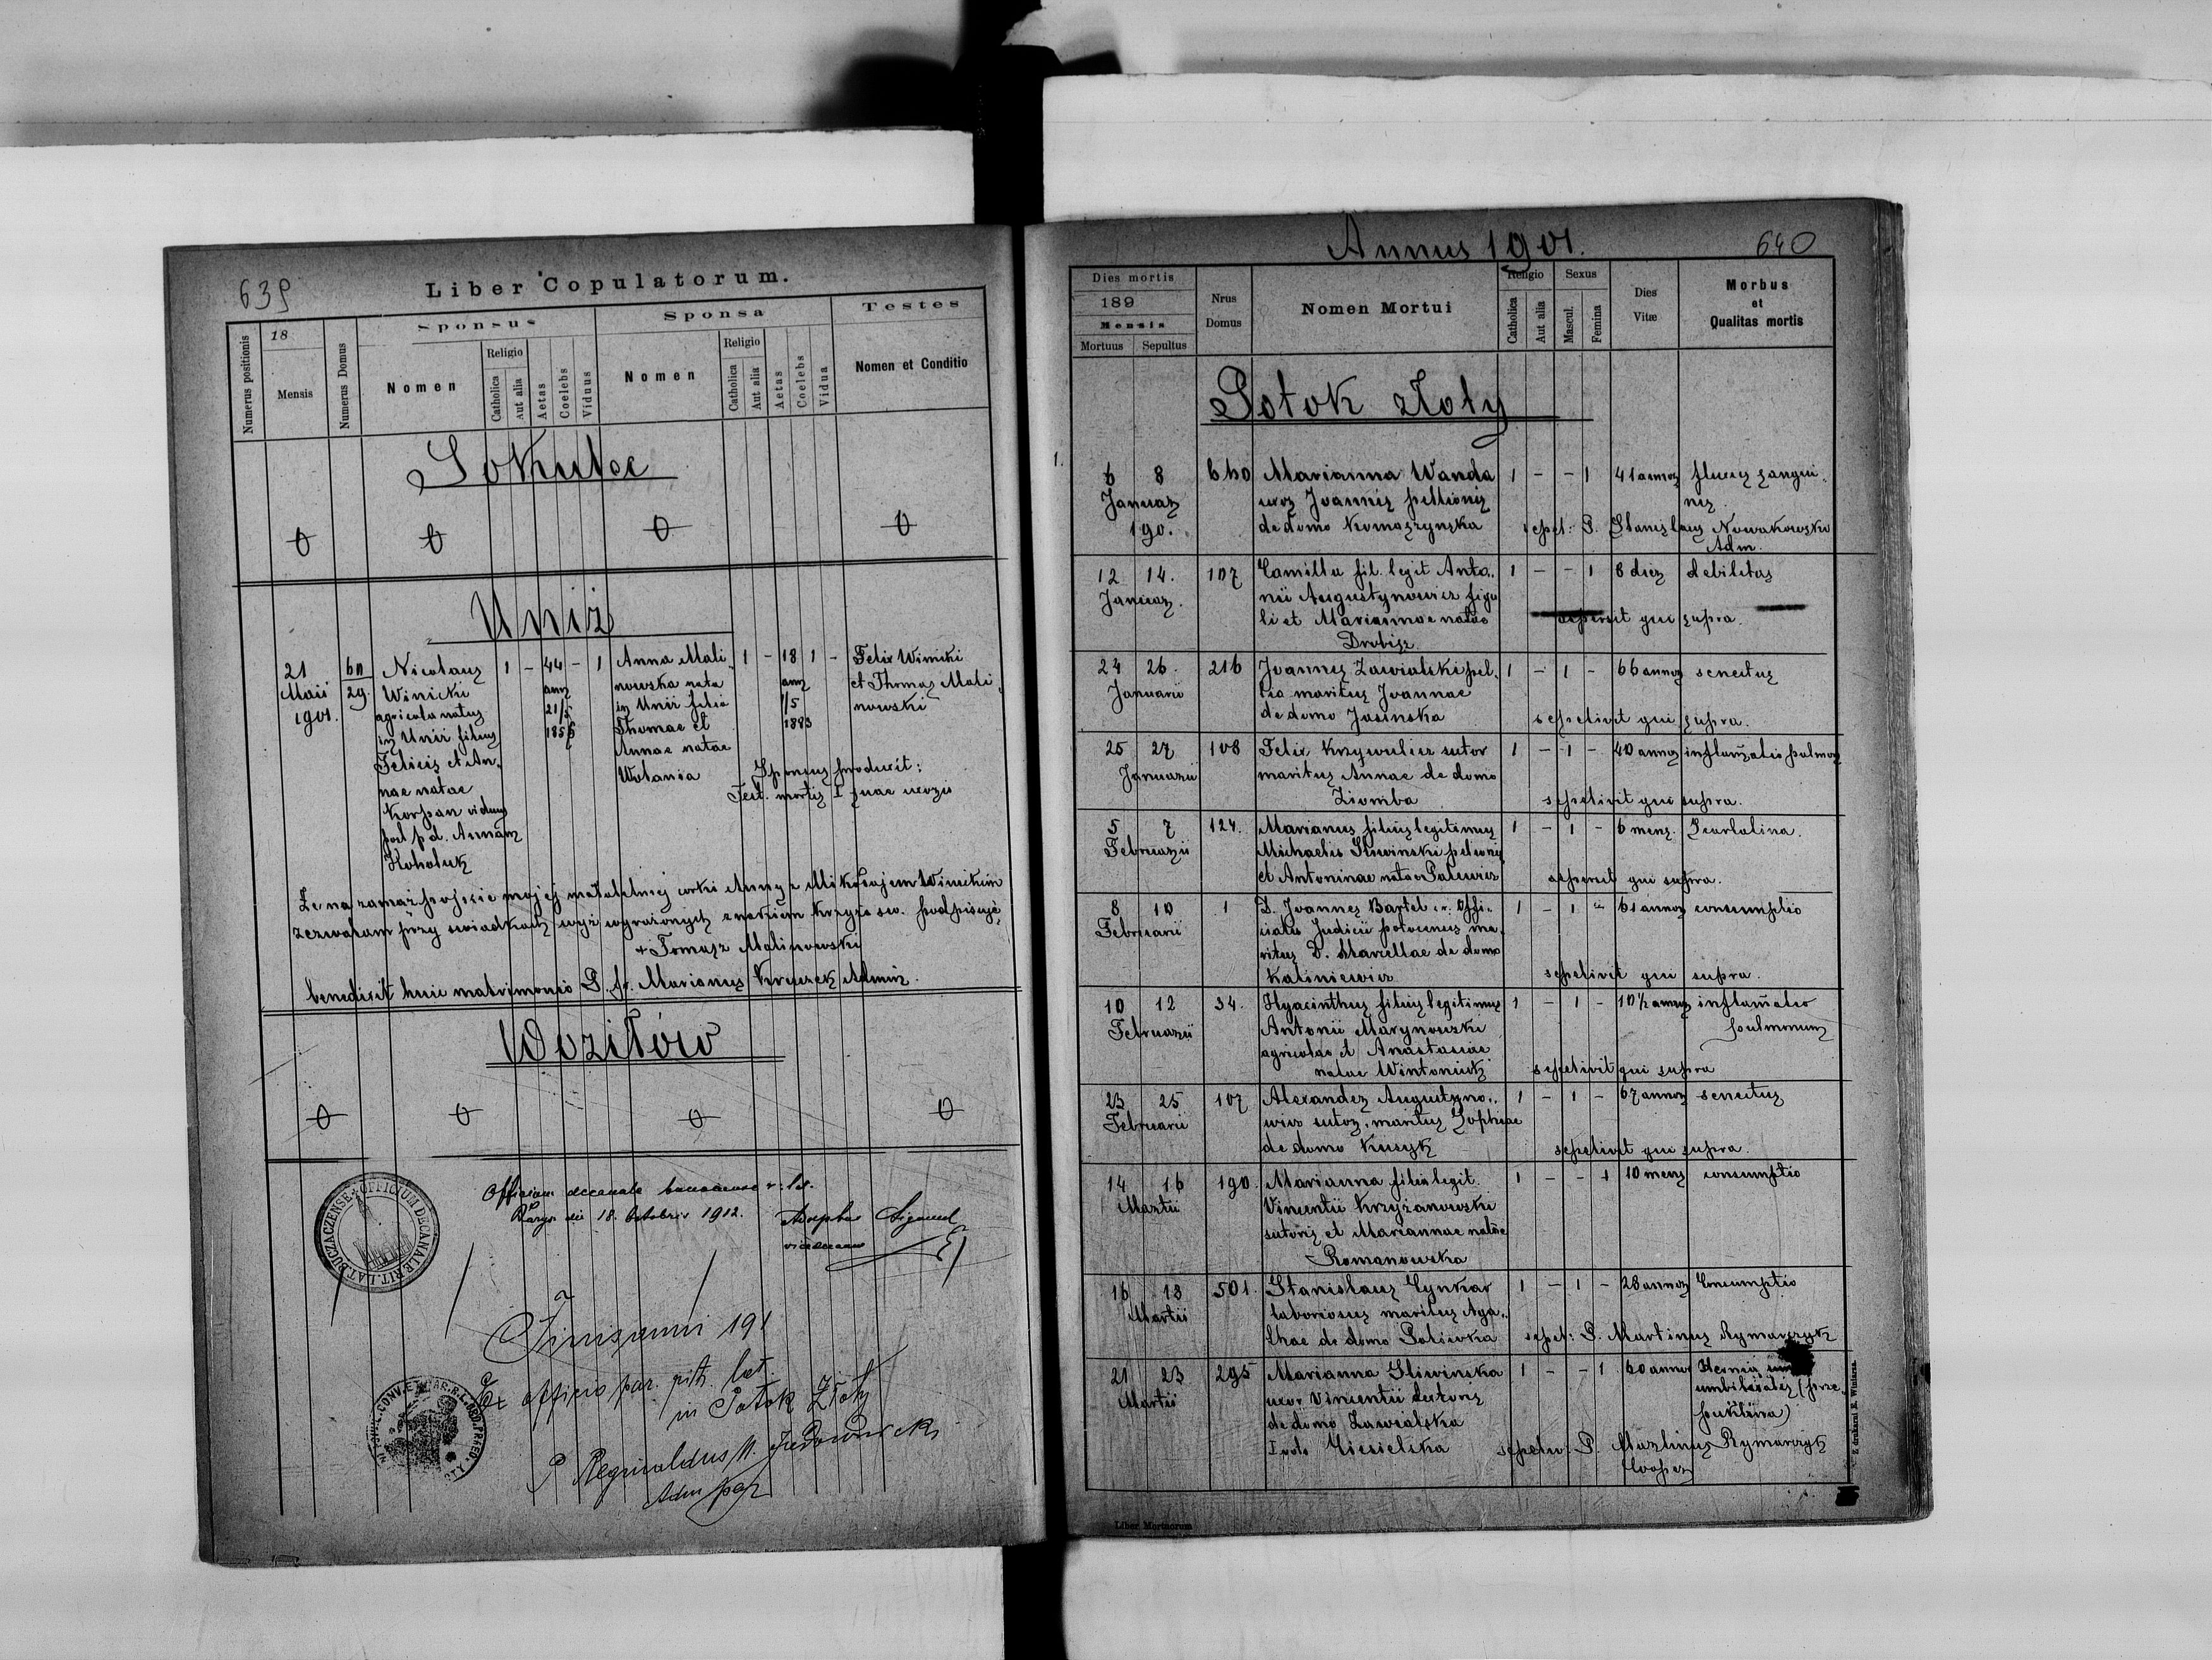 639
Liber Copulatorum.
Numerus positionis
18
Mensis
Numerus Domus
Sponsus
Nomen
Religio
Catholica
Aut alia
Aetas
Coelebs
Viduus
Sponsa
Nomen
Religio
Catholica
Aut alia
Aetas
Coelebs
Vidua
Testes
Nomen et Conditio
Sokulec
0 0 0 0
Uniż
21
Maii
1901.
60
29.
Nicolaus
Winicki
agricola natus
in Uniż filius
Felicis et An-
nae natae
Korpan viduus
post p.d. Annam
1 - 44 - 1
ann
21/5
1856
Anna Mali-
nowska nata
in Uniż filia
Thomae et
Annae natae
Wolania
1 - 18 1 -
ann
1/5
1883
Felix Winicki
et Thomas Mali-
nowski
Sponsus produxit:
Test. mortis I suae uxoris
Że na zamąż pójście mojej małoletniej córki Anny z Mikołajem Winickim
zezwalam przy świadkach wyż wyrażonych znakiem krzyża św. podpisuję,
+ Tomasz Malinowski
benedixit huic matrimonio P. fr. Marianus Kruczek Admin.
Woziłów
0 0 0 0
OFFICIUM DECANALE RIT. LAT. BUCZACZENSE
Officium decanale buczacense r. lat.
die 18. Octobris 1912.
vicedecanus
Ex officio par. rit. lat.
in Potok Złoty
P Reginaldus M.
Adm par
Annus 1901.
640
Dies mortis
189
Mensis
Mortuus
Sepultus
Nrus
Domus
Nomen Mortui
Religio
Catholica
Aut alia
Sexus
Mascul.
Femina
Dies
Vitæ
Morbus
et
Qualitas mortis
Potok złoty
1.
6 8 640 Marianna Wanda 1 - - 1 41 annor fluxus sangui-
Januar uxor Joannis pellionis nis
190. de domo Komaszyńska sepel: P. Stanislaus Nowakowski
Adm.
12 14. 107 Camilla fil. legit Anto- 1 - - 1 8 dies debilitas
Januar. nii Augustynowicz figu
li et Mariannae natae sepelivit qui supra.
24 26. 216 Joannes Zawialski pel- 1 - 1 - 66 annor senectus
Januarii lio maritus Joannae
de domo Jasińska sepelivit qui supra.
25 27 108 Felix Krzywulicz sutor 1 - 1 - 40 annor inflam̄atio pulmon
Januarii maritus Annae de domo
Ziomba sepelivit qui supra.
5 7 124. Marianus filius legitimus 1 - 1 - 6 mens. Scarlatina.
Februarii Michaelis Śliwinski pelionis
et Antoninae natae Palewicz sepelivit qui supra.
8 10 1 D. Joannes Bartel c.r. Offi- 1 - 1 - 61 annor consumptio
Februarii cialis Judicii potocensis ma-
ritus D. Marcellae de domo
Kaliniewicz sepelivit qui supra.
10 12 34. Hyacinthus filius legitimus 1 - 1 - 10 1/2 annor inflam̄atio
Februarii Antonii Marynowski pulmonum
agricolae et Anastasiae
natae Wintoniuk sepelivit qui supra
23 25 107 Alexander Augustyno- 1 - 1 - 67 annor senectus
Februarii wicz sutor, maritus Sophiae
de domo Kusyk sepelivit qui supra.
14 16 190. Marianna filia legit. 1 - - 1 10 mens consumptio
Martii Vincentii Krzyżanowski
sutoris et Mariannae natae
Romanowska
16 18 501. Stanislaus Cynkar 1 - 1 - 28 annor Consumptio
Martii laboriosus maritus Aga-
thae de domo Poliwka sepel: P. Martinus Rymarczyk
21 23 295 Marianna Sliwinska 1 - - 1 60 annor Hernia
Martii uxor Vincentii sutoris umbilicalis (prze-
de domo Zawialska puklina)
I voto Ciesielska sepeliv: P. Martinus Rymarczyk
Cooper
Liber Mortuorum
Z drukarni E. Winiarza.